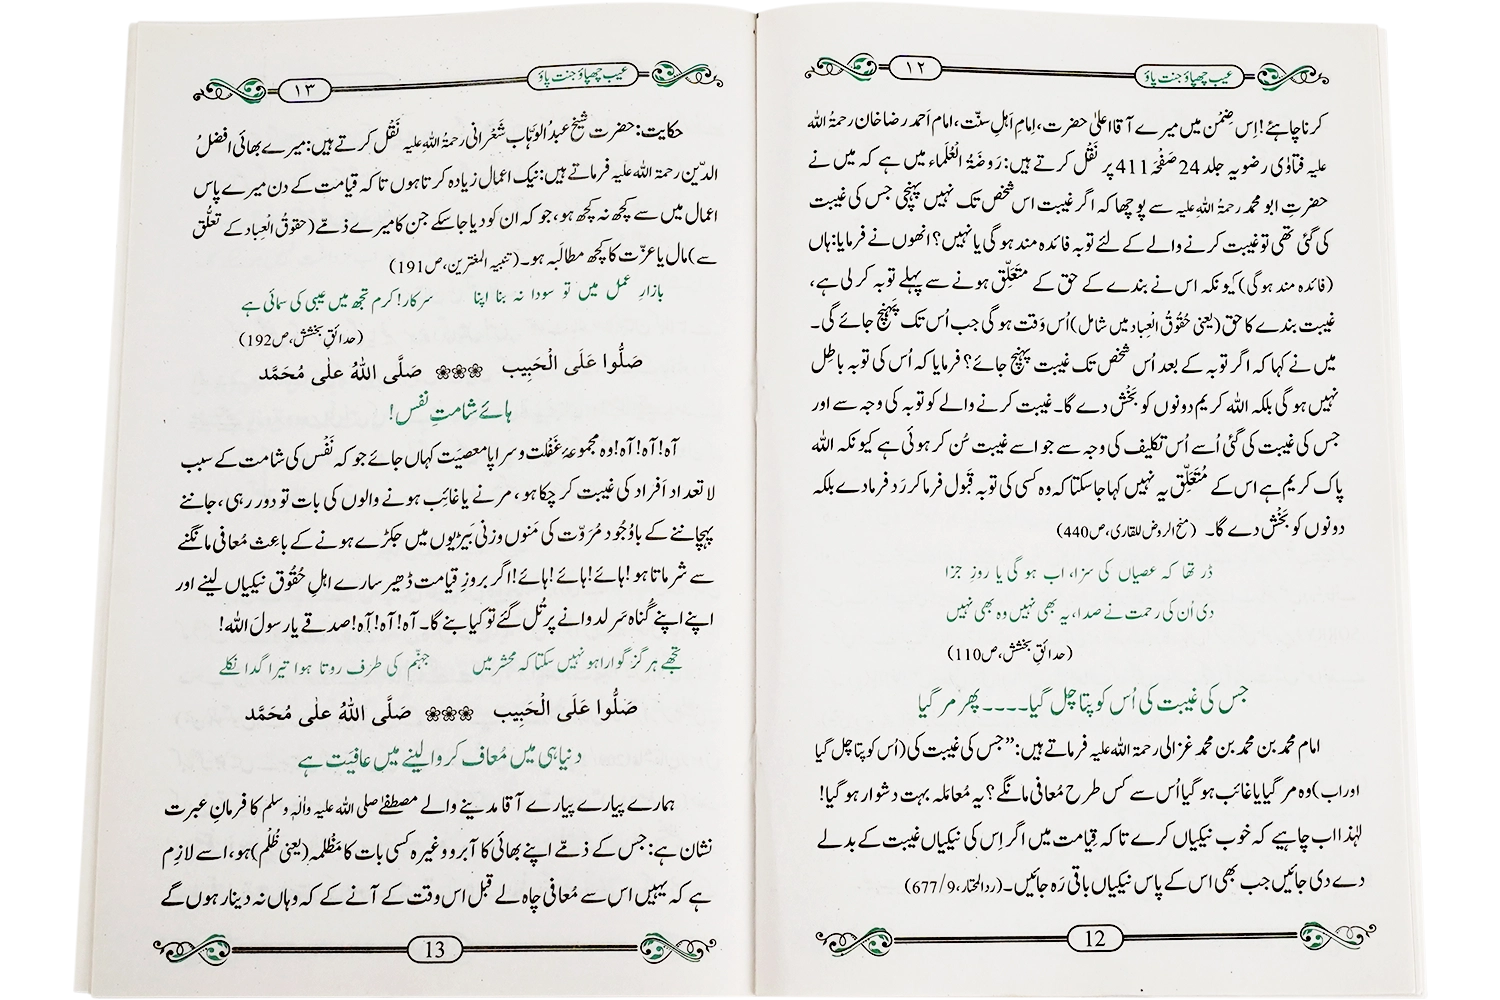 عیب چھپاؤ جنت پاؤ
۱۲
کرنا چاہئے! اِس ضِمْن میں میرے آقا اعلیٰ حضرت، اِمامِ اَہلِ سنّت، امام اَحمد رضا خان رحمۃُ اللہ
علیہ فتاوٰی رضویہ جلد 24 صَفْحَہ 411 پر نَقْل کرتے ہیں: رَوضَۃُ الْعُلَماء میں ہے کہ میں نے
حضرتِ ابو محمد رحمۃُ اللہِ علیہ سے پوچھا کہ اگر غیبت اس شخص تک نہیں پہنچی جس کی غیبت
کی گئی تھی تو غیبت کرنے والے کے لئے توبہ فائدہ مند ہوگی یا نہیں؟ انھوں نے فرمایا: ہاں
(فائدہ مند ہوگی) کیونکہ اس نے بندے کے حق کے مُتَعَلِّق ہونے سے پہلے توبہ کر لی ہے،
غیبت بندے کا حق (یعنی حُقُوقُ الْعِباد میں شامل) اُس وَقت ہوگی جب اُس تک پَہُنچ جائے گی۔
میں نے کہا کہ اگر توبہ کے بعد اُس شخص تک غیبت پہنچ جائے؟ فرمایا کہ اُس کی توبہ باطِل
نہیں ہوگی بلکہ اللہ کریم دونوں کو بَخْش دے گا۔ غیبت کرنے والے کو توبہ کی وجہ سے اور
جس کی غیبت کی گئی اُسے اُس تکلیف کی وجہ سے جو اسے غیبت سُن کر ہوئی ہے کیونکہ اللہ
پاک کریم ہے اس کے مُتَعَلِّق یہ نہیں کہا جا سکتا کہ وہ کسی کی توبہ قَبول فرما کر رَد فرما دے بلکہ
دونوں کو بَخْش دے گا۔ (منح الروض للقاری، ص440)
ڈر تھا کہ عصیاں کی سزا، اب ہوگی یا روزِ جزا
دی اُن کی رحمت نے صدا، یہ بھی نہیں وہ بھی نہیں
(حدائقِ بخشش، ص110)
جس کی غیبت کی اُس کو پتا چل گیا۔۔۔۔ پھر مر گیا
امام محمد بن محمد بن محمد غزالی رحمۃ اللہ علیہ فرماتے ہیں: ”جس کی غیبت کی (اُس کو پتا چل گیا
اور اب) وہ مر گیا یا غائب ہو گیا اُس سے کس طرح مُعافی مانگے؟ یہ مُعامَلہ بہت دشوار ہو گیا!
لہٰذا اب چاہیے کہ خوب نیکیاں کرے تاکہ قِیامت میں اگر اِس کی نیکیاں غیبت کے بدلے
دے دی جائیں جب بھی اس کے پاس نیکیاں باقی رَہ جائیں۔ (ردالمحتار، 9/677)
12
عیب چھپاؤ جنت پاؤ
۱۳
حکایت: حضرت شیخ عبدُ الوہّاب شَعْرانی رحمۃُ اللہِ علیہ نَقْل کرتے ہیں: میرے بھائی افضلُ
الدّین رحمۃ اللہ علیہ فرماتے ہیں: نیک اعمال زیادہ کرتا ہوں تاکہ قیامت کے دن میرے پاس
اعمال میں سے کچھ نہ کچھ ہو، جو کہ ان کو دیا جا سکے جن کا میرے ذمّے (حقوقُ الْعِباد کے تعلُّق
سے) مال یا عزّت کا کچھ مطالَبہ ہو۔ (تنبیہ المغترین، ص191)
بازارِ عمل میں تو سودا نہ بنا اپنا سرکار! کرم تجھ میں عیبی کی سمائی ہے
(حدائقِ بخشش، ص192)
صَلُّوا عَلَی الْحَبِیب صَلَّی اللہُ عَلٰی مُحَمَّد
ہائے شامتِ نفس!
آہ! آہ! آہ! وہ مجموعۂ غَفْلت و سراپا معصیَت کہاں جائے جو کہ نَفْس کی شامت کے سبب
لا تعداد اَفراد کی غیبت کر چکا ہو، مرنے یا غائب ہونے والوں کی بات تو دور رہی، جاننے
پہچاننے کے باوُجُود مُرَوّت کی مَنوں وزنی بَیڑیوں میں جکڑے ہونے کے باعِث مُعافی مانگنے
سے شرماتا ہو! ہائے! ہائے! ہائے! اگر بروزِ قیامت ڈھیر سارے اہلِ حُقُوق نیکیاں لینے اور
اپنے اپنے گُناہ سَر لدوانے پر تُل گئے تو کیا بنے گا۔ آہ! آہ! آہ! صدقے یا رسولَ اللہ!
تجھے ہر گز گوارا ہو نہیں سکتا کہ محشر میں جہنّم کی طرف روتا ہوا تیرا گدا نکلے
صَلُّوا عَلَی الْحَبِیب صَلَّی اللہُ عَلٰی مُحَمَّد
دنیا ہی میں مُعاف کروا لینے میں عافیَت ہے
ہمارے پیارے پیارے آقا مدینے والے مصطفٰے صلی اللہ علیہ واٰلہٖ وسلم کا فرمانِ عبرت
نشان ہے: جس کے ذمّے اپنے بھائی کا آبرو وغیرہ کسی بات کا مَظْلمہ (یعنی ظُلْم) ہو، اسے لازِم
ہے کہ یہیں اس سے مُعافی چاہ لے قبل اس وقت کے آنے کے کہ وہاں نہ دینار ہوں گے
13